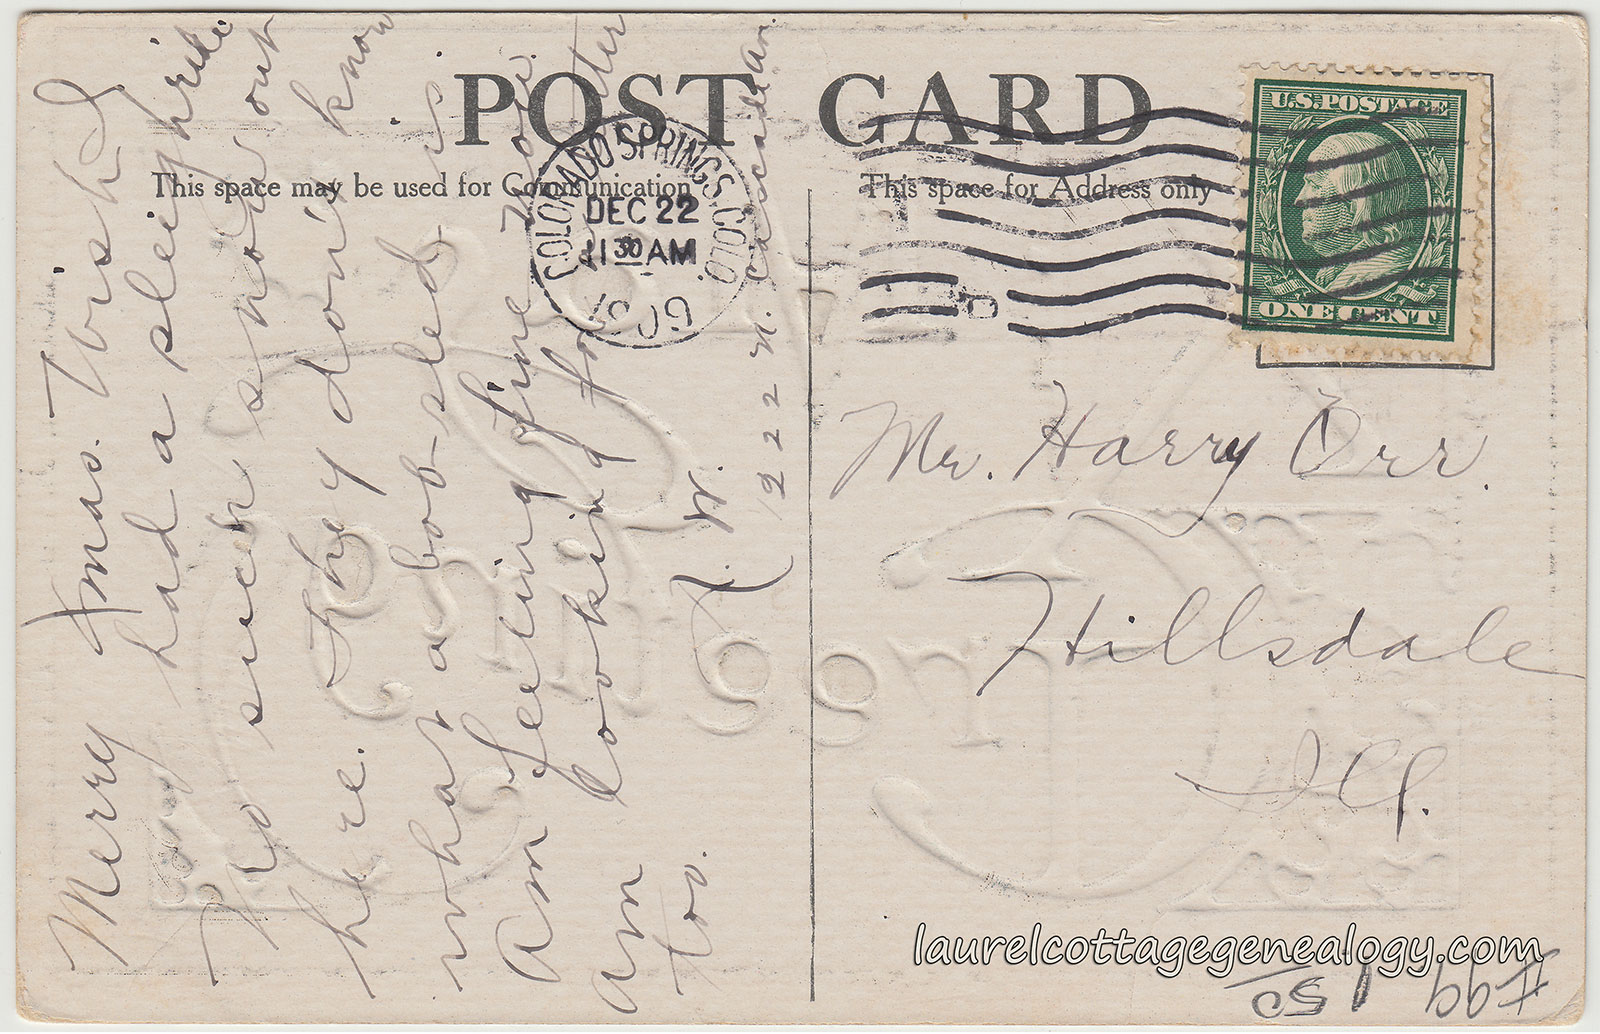 POST CARD
This space may be used for Communication
This space for Address only
COLORADO SPRINGS, COLO.
DEC 22
11 30 AM
1909
U.S. POSTAGE
ONE CENT
Merry Xmas. Wish I
had a sleigh ride.
No such snow out
here. They don't know
what a bob-sled is
Am feeling fine now.
am looking for
too.
W.
1222 N.
Mr. Harry Orr.
Hillsdale
Ill.
laurelcottagegenealogy.com